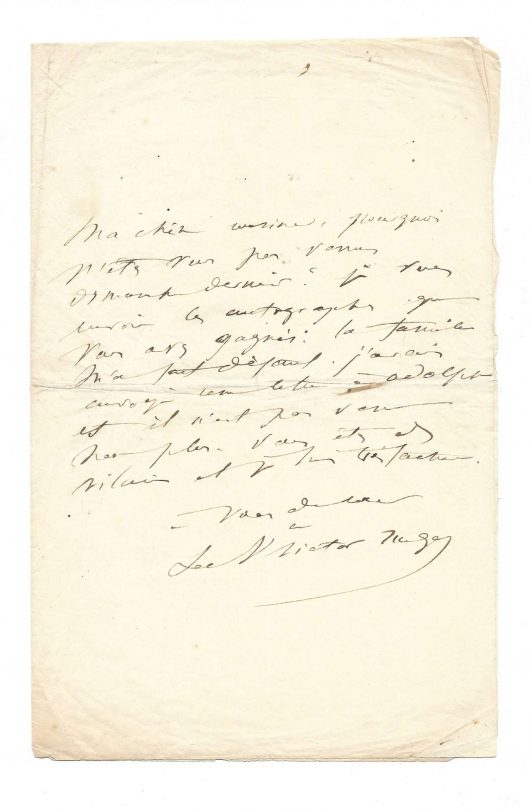 Ma chère cousine, pourquoi
n'êtes vous pas venus
dimanche dernier? je vous
envoie les autographes que
vous avez gagnés. la famille
m'a fait défaut. j'avais
envoyé une lettre à adolphe
et il n'est pas venu
non plus. vous êtes des
vilains et je suis très fachée.
Victor Hugo